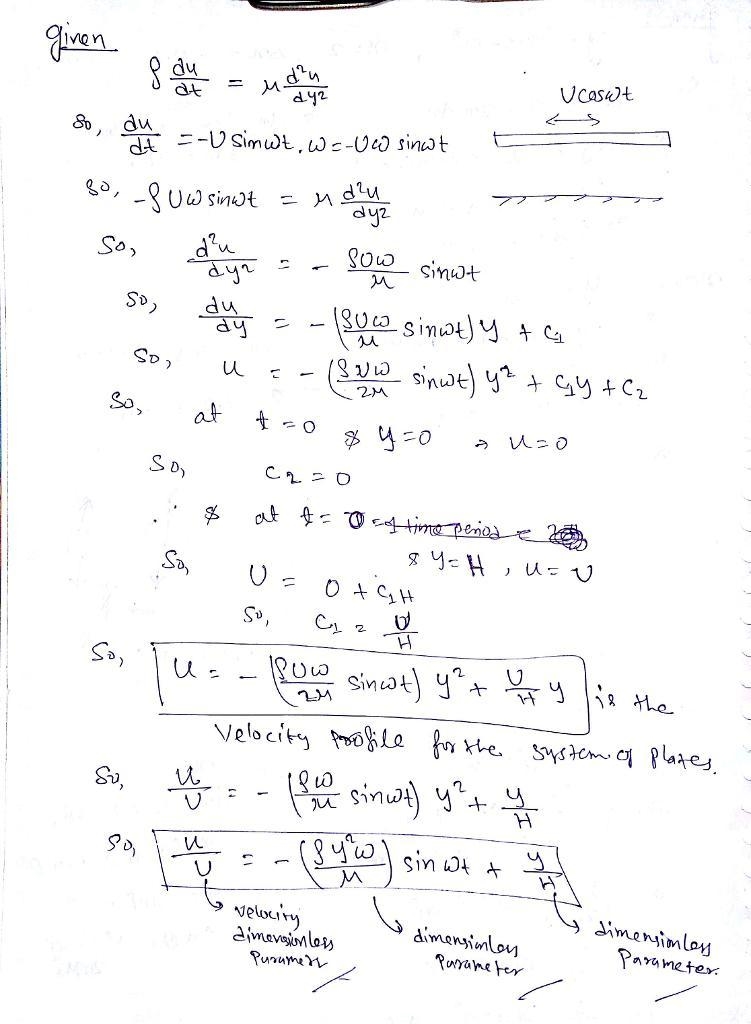 given
ρ du/dt = μ d²u/dy²
so, du/dt = -U sinωt . ω = -Uω sinωt
Ucosωt
so, -ρUω sinωt = μ d²u/dy²
So, d²u/dy² = - ρUω/μ sinωt
so, du/dy = - (ρUω/μ sinωt) y + C1
So, u = - (ρUω/2μ sinωt) y² + C1y + C2
So, at t=0 & y=0 ⇒ u=0
So, C2 = 0
∴ & at t=0
& y=H , u=U
So, U = 0 + C1H
So, C1 = U/H
So, u = - (ρUω/2μ sinωt) y² + U/H y is the
Velocity profile for the system of plates.
So, u/U = - (ρω/2μ sinωt) y² + y/H
So, u/U = - (ρy²ω/μ) sin ωt + y/H
velocity
dimensionless
dimensionless
Parameter
dimensionless
Parameter.